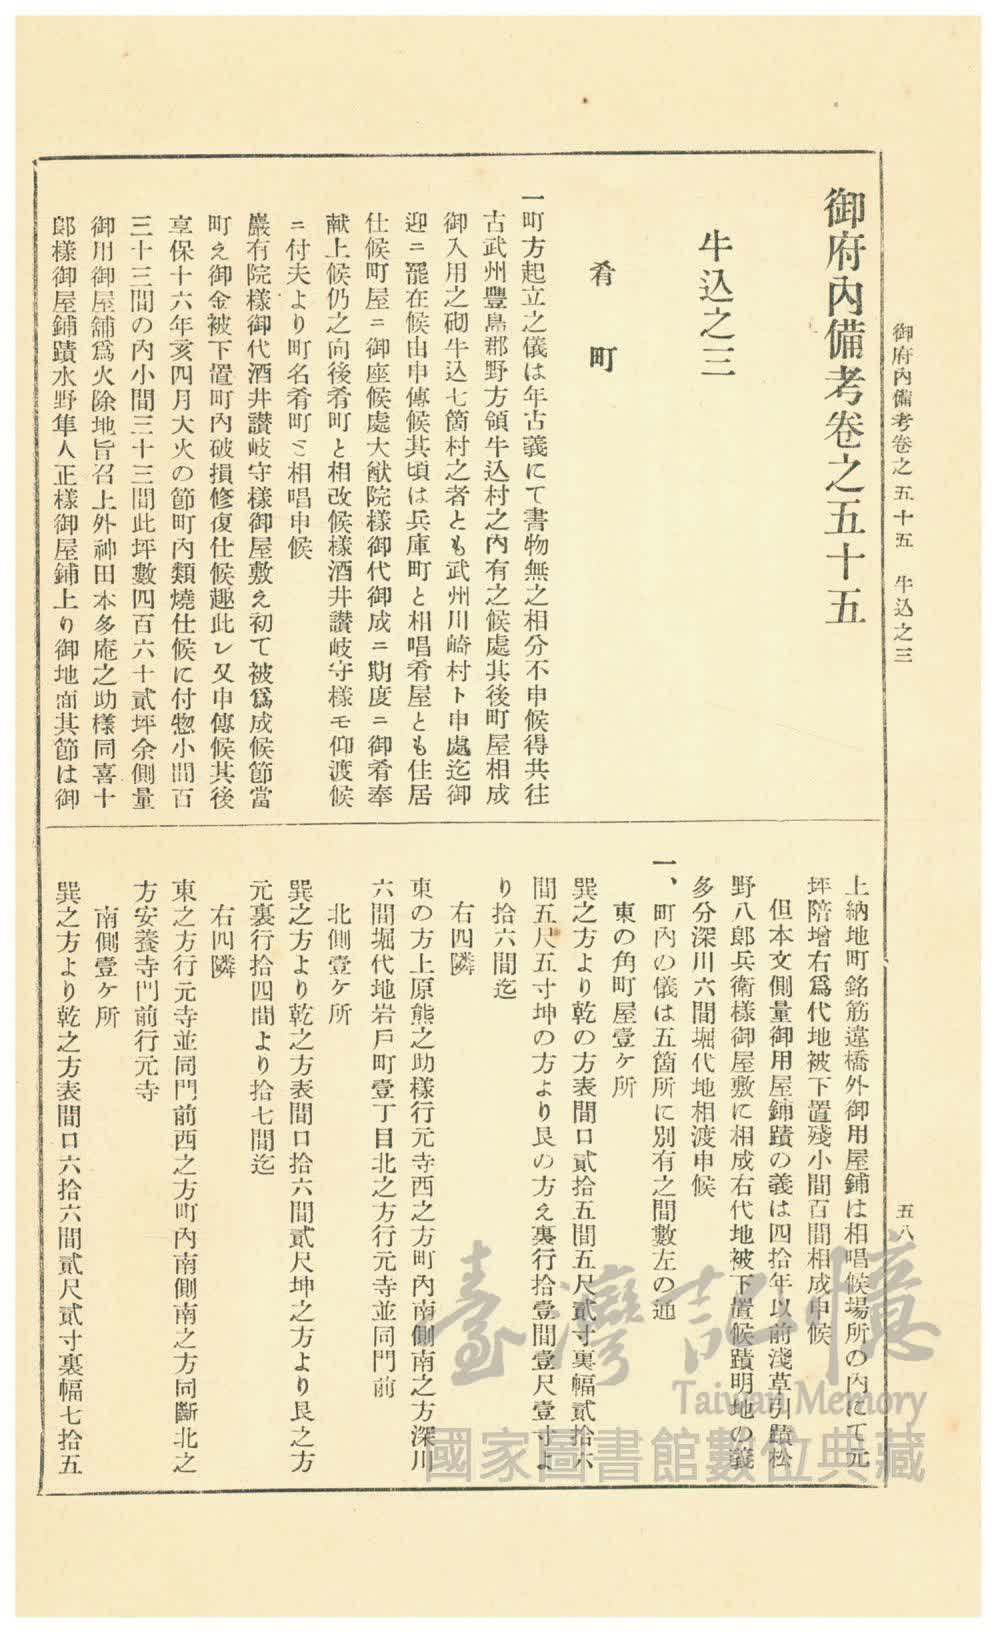 御府內備考卷之五十五　牛込之三
五八
御府內備考卷之五十五
牛込之三
肴　町
一町方起立之儀は年古義にて書物無之相分不申候得共往
古武州豐島郡野方領牛込村之內有之候處其後町屋相成
御入用之砌牛込七箇村之者とも武州川崎村ト申處迄御
迎ニ罷在候由申傳候其頃は兵庫町と相唱肴屋とも住居
仕候町屋ニ御座候處大猷院樣御代御成ニ期度ニ御肴奉
献上候仍之向後肴町と相改候樣酒井讃岐守樣モ仰渡候
ニ付夫より町名肴町ミ相唱申候
嚴有院樣御代酒井讃岐守樣御屋敷え初て被爲成候節當
町え御金被下置町內破損修復仕候趣此レ又申傳候其後
享保十六年亥四月大火の節町內類燒仕候に付惣小間百
三十三間の內小間三十三間此坪數四百六十貳坪余側量
御用御屋舖爲火除地旨召上外神田本多庵之助樣同喜十
郎樣御屋鋪蹟水野隼人正樣御屋鋪上り御地面其節は御
上納地町銘筋違橋外御用屋鋪は相唱候場所の內にて元
坪陪增右爲代地被下置殘小間百間相成申候
但本文側量御用屋鋪蹟の義は四拾年以前淺草引蹟松
野八郎兵衛樣御屋敷に相成右代地被下置候蹟明地の義
多分深川六間堀代地相渡申候
一、町內の儀は五箇所に別有之間數左の通
東の角町屋壹ケ所
巽之方より乾の方表間口貳拾五間五尺貳寸裏幅貳拾六
間五尺五寸坤の方より艮の方え裏行拾壹間壹尺壹寸よ
り拾六間迄
右四隣
東の方上原熊之助樣行元寺西之方町內南側南之方深川
六間堀代地岩戶町壹丁目北之方行元寺並同門前
北側壹ケ所
巽之方より乾之方表間口拾六間貳尺坤之方より艮之方
元裏行拾四間より拾七間迄
右四隣
東之方行元寺並同門前西之方町內南側南之方同斷北之
方安養寺門前行元寺
南側壹ケ所
巽之方より乾之方表間口六拾六間貳尺貳寸裏幅七拾五
臺灣記憶
Taiwan Memory
國家圖書館數位典藏